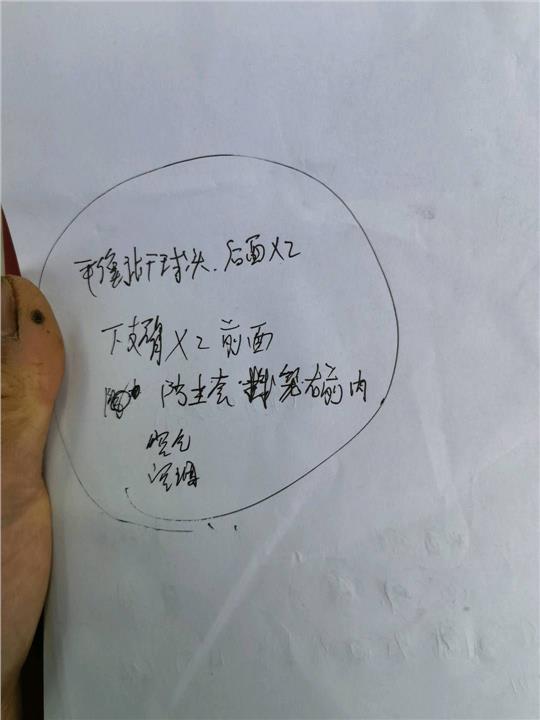 平衡站干球头.后面X2
下支臂X2前面
防尘套 右前内
空气